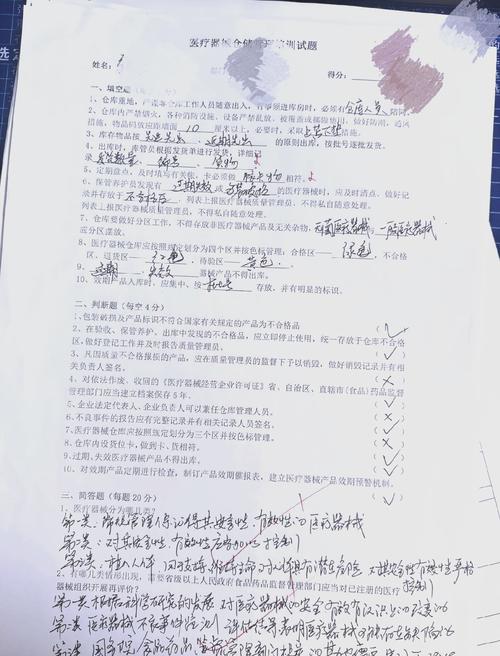 医疗器械仓储管理培训试题
姓名：
得分：
一、填空题
1、仓库重地，严禁非仓库工作人员随意出入，有事须进库房时，必须有仓库人员陪同。
2、仓库内严禁烟火，各种消防设施、设备严禁乱放、被覆盖或挪做他用，做好防潮、通风
措施，物品码放应距墙面 10 厘米以上，必要时，采取上层下垫措施。
3、库存物品按 先进先出 、 近期先出 的原则出库，按批号逐批发货。
4、出库时，库管员根据发货单进行发货，详细记
录 发货数量 、 编号 、 货物
5、定期盘点，及时填写有关帐、卡必须做 帐卡物 相符。
6、保管养护员发现有 近期失效 或 的医疗器械时，应及时清点，做好记
录并存放于 不合格区 ，列表上报医疗器械质量管理员，不得私自随意处理。
列表上报医疗器械质量管理员，不得私自随意处理。
7、仓库要做好分区工作，不得存放非医疗器械产品及无关杂物，对 医疗器械 、一般医疗器械
应分区摆放。
8、医疗器械仓库应按照规定划分为四个区并按色标管理：合格区—— 绿色 、不合格
区、退货区—— 红色 、待验区—— 黄色 。
9、 近期 、 失效 器械产品不得出库。
10、效期产品入库时，应集中、按 批号 存放，并有明显的标识。
二、判断题（每空4分）
1、包装破损及产品标识不符合国家有关规定的产品为不合格品 （ ✓ ）
2、在验收、保管养护、出库中发现的不合格品，应立即停止使用，统一存放于仓库不合格
区，做好登记工作并及时报告质量管理员。 （ ✓ ）
3、凡因质量不合格报损的产品，应在质量管理员的监督下予以销毁，做好销毁记录并有相
关负责人签名。 （ ✓ ）
4、对依法作废、收回的《医疗器械经营企业许可证》省、自治区、直辖市(食品)药品监督
管理部门应当建立档案保存5年。 （ × ）
5、企业法定代表人、企业负责人可以兼任仓库管理人员。 （ × ）
6、不良事件的报告应有完整记录并有相关记录人员签名。 （ ✓ ）
7、医疗器械仓库应按照规定划分为三个区并按色标管理。 （ × ）
8、仓库内设货位卡，做到卡、货相符。 （ ✓ ）
9、过期、失效医疗器械产品不得出库。 （ ✓ ）
10、对效期产品定期进行检查，制订产品效期催报表，建立医疗器械产品效期预警机制。
（ ✓ ）
二、简答题（每题20分）
1、医疗器械分为哪几类？
第一类：常规管理保证其安全性、有效性的医疗器械
第二类：对其安全性、有效性应当加以控制
第三类：植入人体、用于支持、维持生命 对人体具有潜在危险 对其安全性有效性严格
控制
2、有哪几类情形出现，需要省级以上人民政府食品药品监督管理部门应当对已注册的医疗
器械组织开展再评价？
第一类根据科学研究的发展 对医疗器械的安全有效有认识上的改变的
第二类 医疗器械不良事件监测 评估结果表明医疗器械可能存在缺陷的
第三类 国务院食品药品监督管理部门